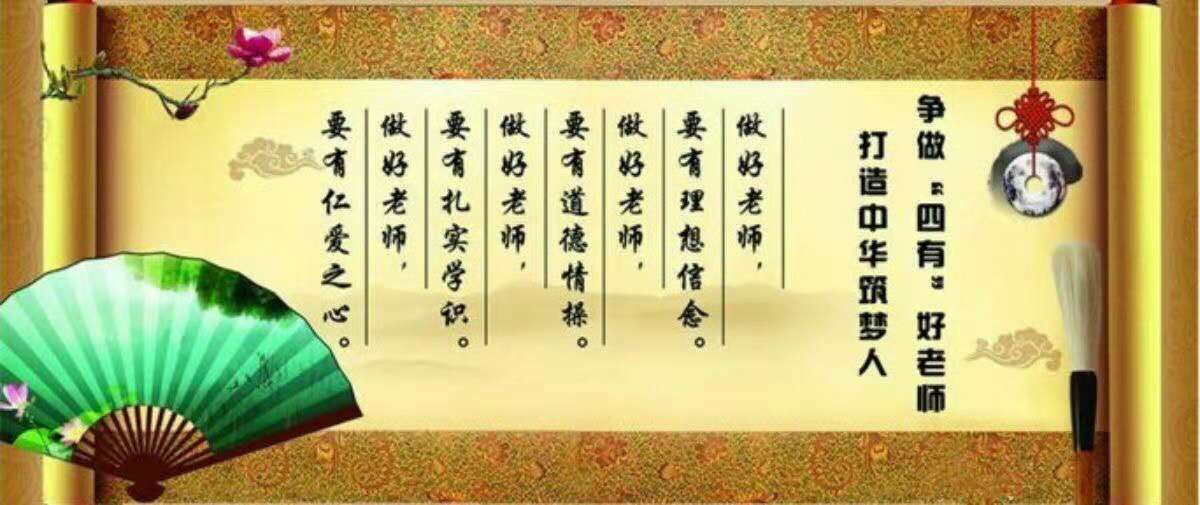 争做“四有”好老师
打造中华筑梦人
做好老师，
要有理想信念。
做好老师，
要有道德情操。
做好老师，
要有扎实学识。
做好老师，
要有仁爱之心。